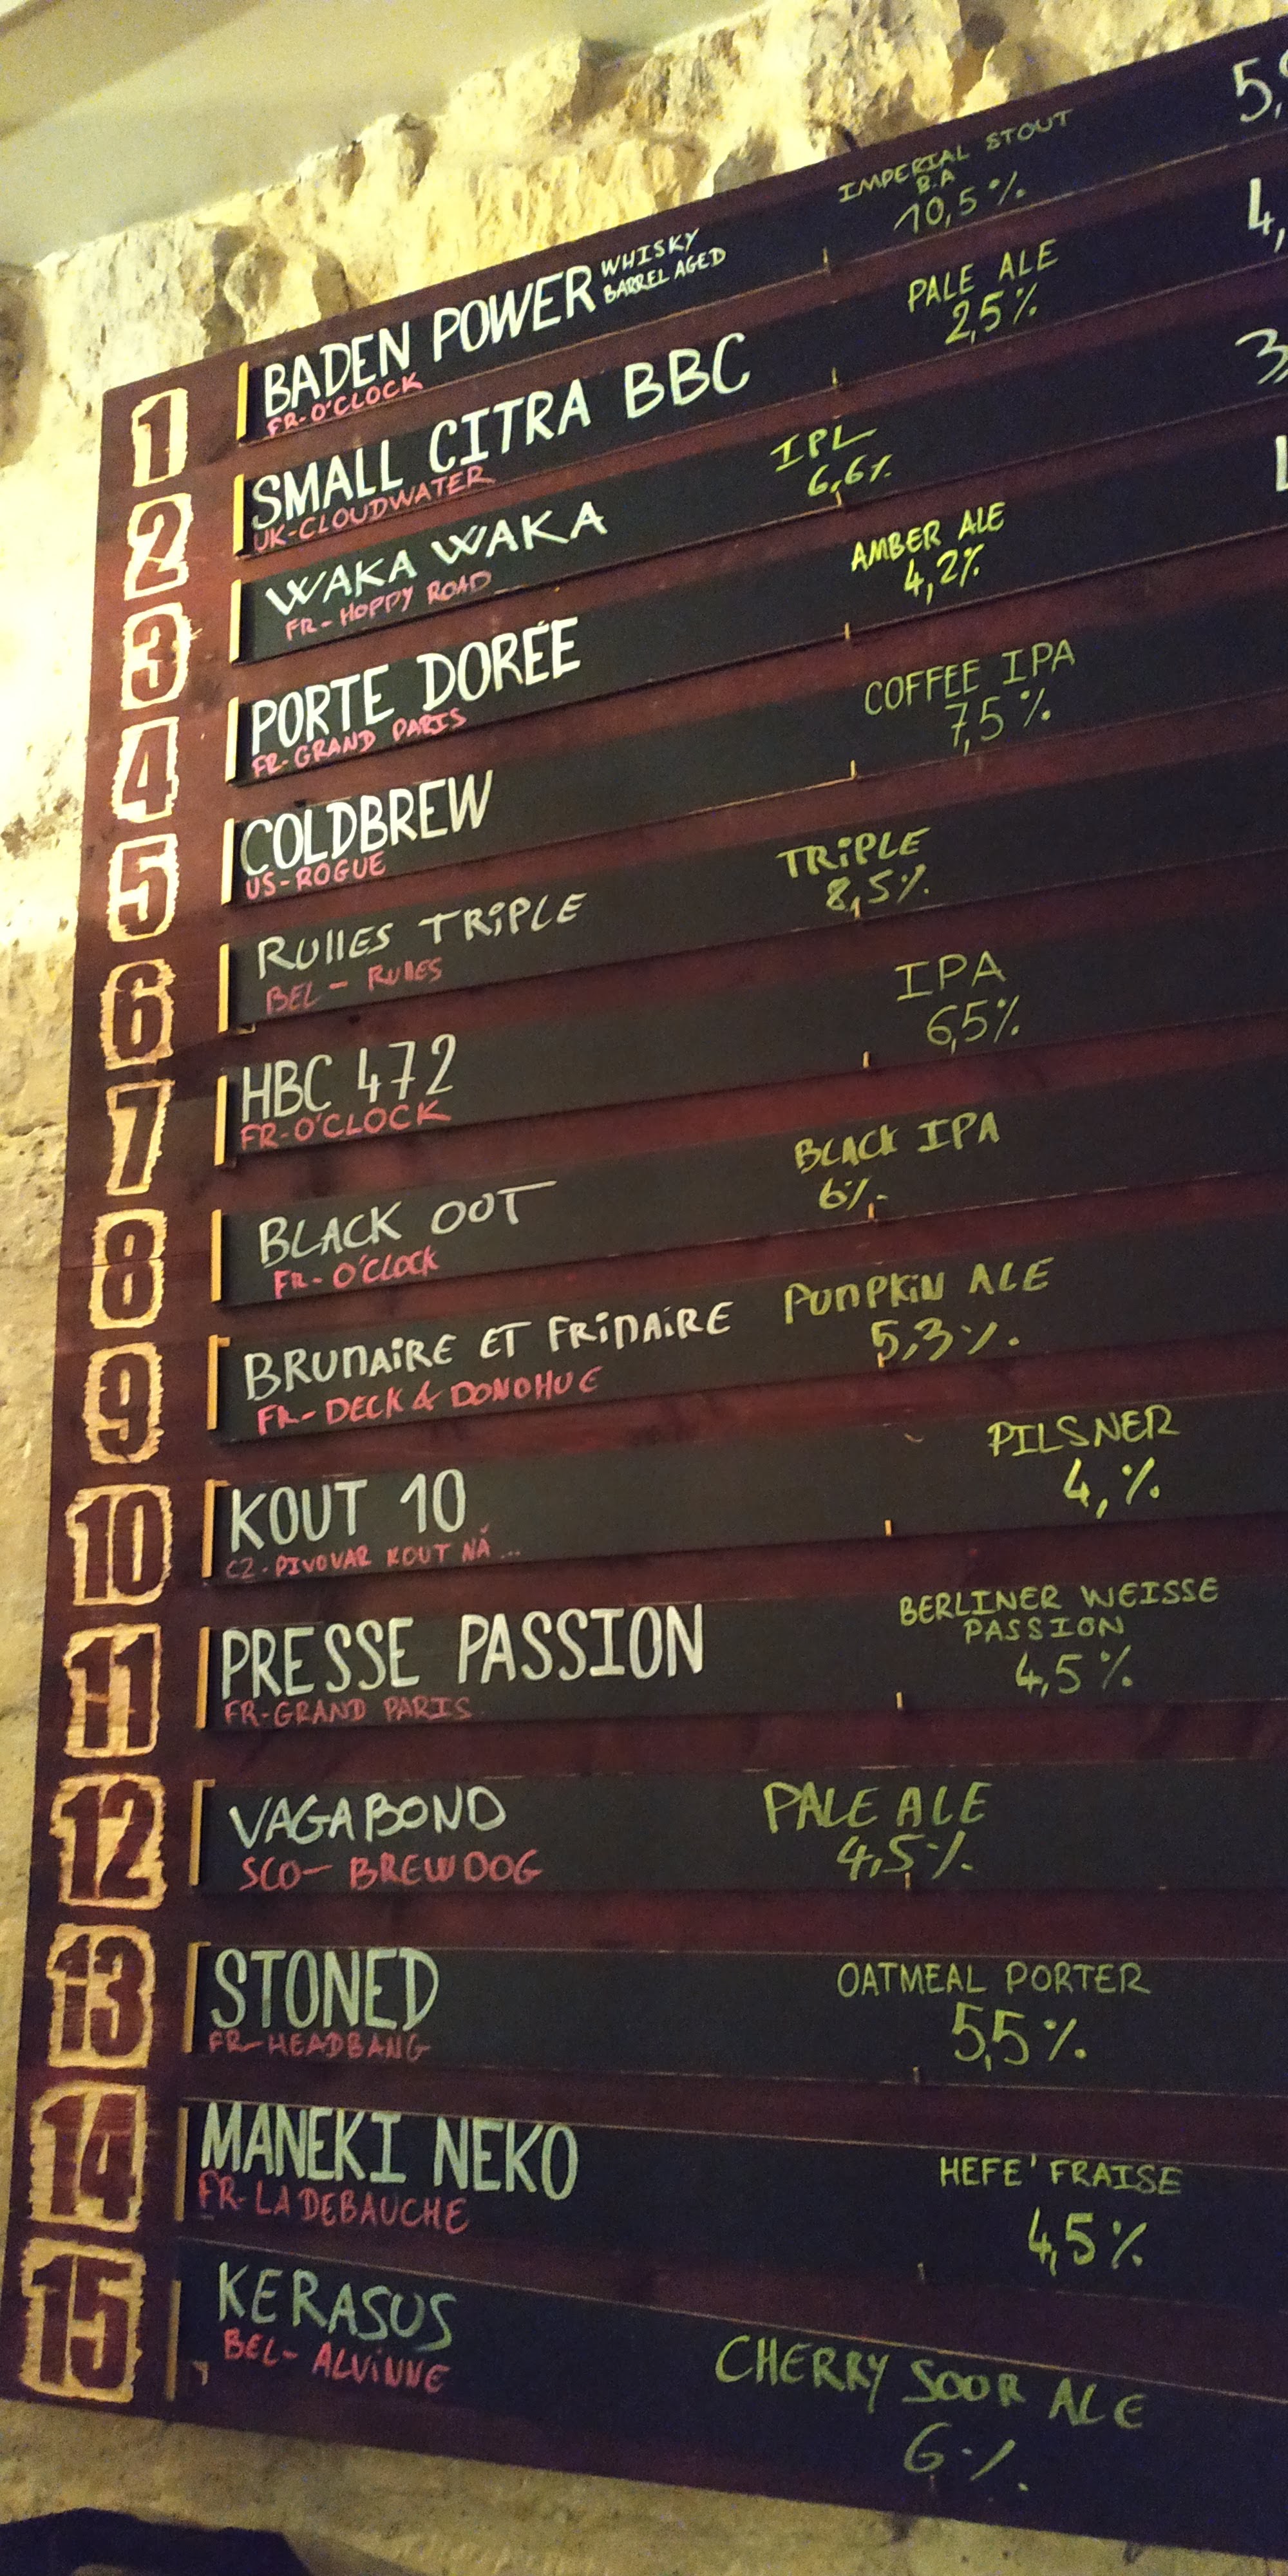 1
BADEN POWER WHISKY BARREL AGED
FR-O'CLOCK
IMPERIAL STOUT
B.A
10,5%
5,
2
SMALL CITRA BBC
UK-CLOUDWATER
PALE ALE
2,5%
4,
3
WAKA WAKA
FR-HOPPY ROAD
IPL
6,6%
3,
4
PORTE DORÉE
FR-GRAND PARIS
AMBER ALE
4,2%
5
COLDBREW
US-ROGUE
COFFEE IPA
7,5%
6
RULLES TRIPLE
BEL-RULLES
TRIPLE
8,5%
7
HBC 472
FR-O'CLOCK
IPA
6,5%
8
BLACK OUT
FR-O'CLOCK
BLACK IPA
6%
9
BRUNAIRE ET FRINAIRE
FR-DECK & DONOHUE
PUMPKIN ALE
5,3%
10
KOUT 10
CZ-PIVOVAR KOUT NÁ ...
PILSNER
4,%
11
PRESSE PASSION
FR-GRAND PARIS
BERLINER WEISSE
PASSION
4,5%
12
VAGABOND
SCO-BREWDOG
PALE ALE
4,5%
13
STONED
FR-HEADBANG
OATMEAL PORTER
5,5%
14
MANEKI NEKO
FR-LA DEBAUCHE
HEFE' FRAISE
4,5%
15
KERASUS
BEL-ALVINNE
CHERRY SOUR ALE
6%